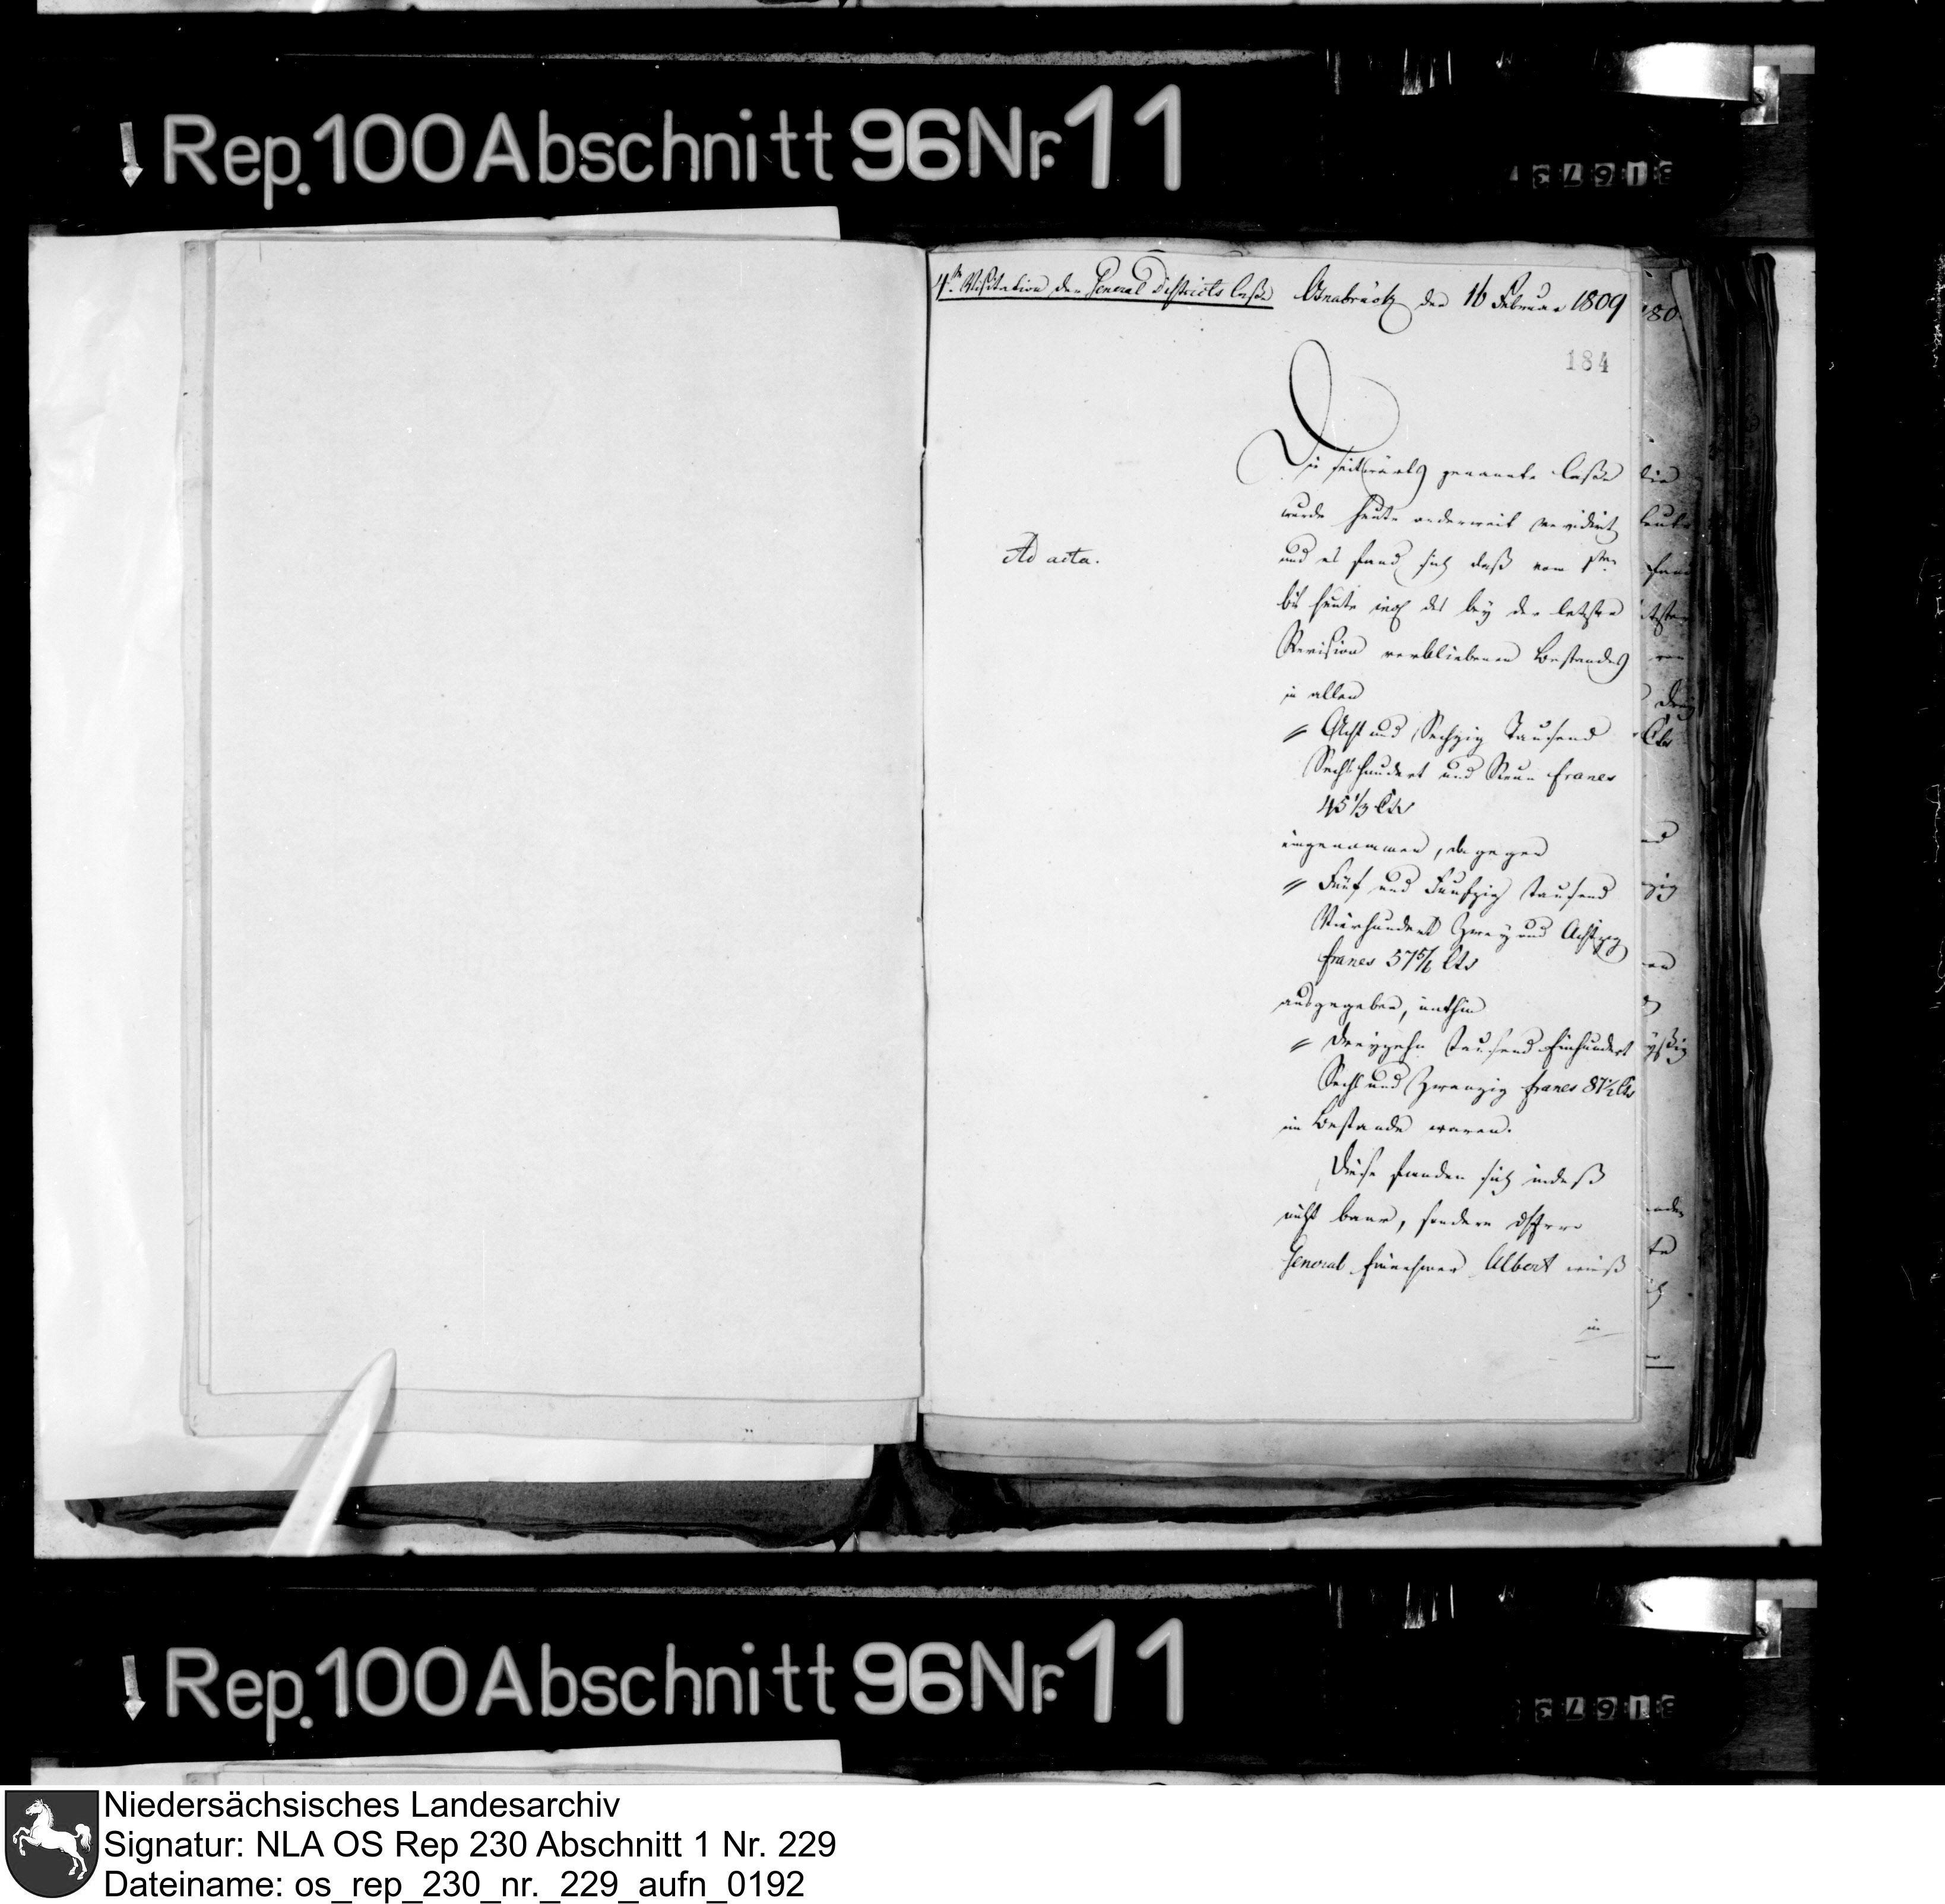 Rep. 100 Abschnitt 96 Nr. 11
4te Visitation der General Districts Casse Osnabrück den 16 Februar 1809
184
Die seitwärts genannte Casse
wurde heute anderweit revidirt
Ad acta.
und es fand sich daß vom 1ten
bis heute incl des bey der letzten
Revision verbliebenen Bestandes
in allen
Acht und Sechzig Tausend
Sechshundert und Neun francs
45 1/3 Cts
eingenommen, dagegen
Fünf und Funfzig tausend
Vierhundert Zwey und Achtzig
francs 57 5/6 Cts
ausgegeben, mithin
Dreyzehn tausend Einhundert
Sechs und Zwanzig francs 87 1/2 Cts
im Bestande waren.
Diese fanden sich indeß
nicht baar, sondern
General Einnehmer Albert wies
in
Rep. 100 Abschnitt 96 Nr. 11
Niedersächsisches Landesarchiv
Signatur: NLA OS Rep 230 Abschnitt 1 Nr. 229
Dateiname: os_rep_230_nr._229_aufn_0192